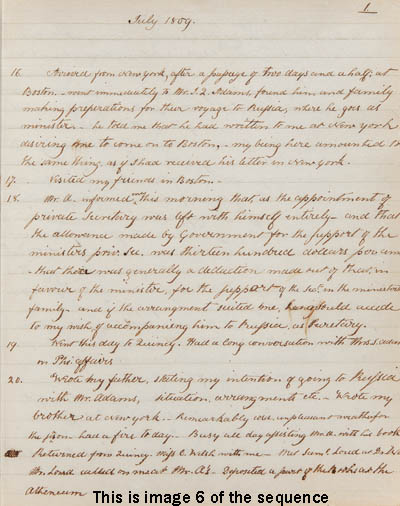 1
July 1809.
16. Arrived from New York, after a passage of two days and a half, at
Boston. – went immediately to Mr. J. Q. Adams, found him and family
making preparations for their voyage to Russia, where he goes as
minister – he told me that he had written to me at New York
desiring me to come on to Boston, – my being here amounted to
the same thing, as if I had received his letter in New York.
17. Visited my friends in Boston. –
18. Mr. A. informed me this morning that as the appointment of
private Secretary was left with himself entirely and that
the allowance made by Government for the support of the
ministers priv. sec. was thirteen hundred dollars pr. ann
– that there was generally a deduction made out of that, in
favour of the minister, for the support of the Sec. in the ministers
family. and if the arrangment suited me, he would accede
to my wish, of accompaning him to Russia, as Secretary.
19. Went this day to Quincy. Had a long conversation with
on affairs
20. Wrote my father, stating my intention of going to Russia
with Mr. Adams, situation, arrangments etc. – Wrote my
brother at New York – Remarkably cold, unpleasant weather for
the season had a fire to day. – Busy all day assisting Mr. A. with his books
Returned from Quincy. Miss C. Welsh with me – Mr.
called on me at Mr. A's – deposited a part of the books at the
Atheneum
This is image 6 of the sequence